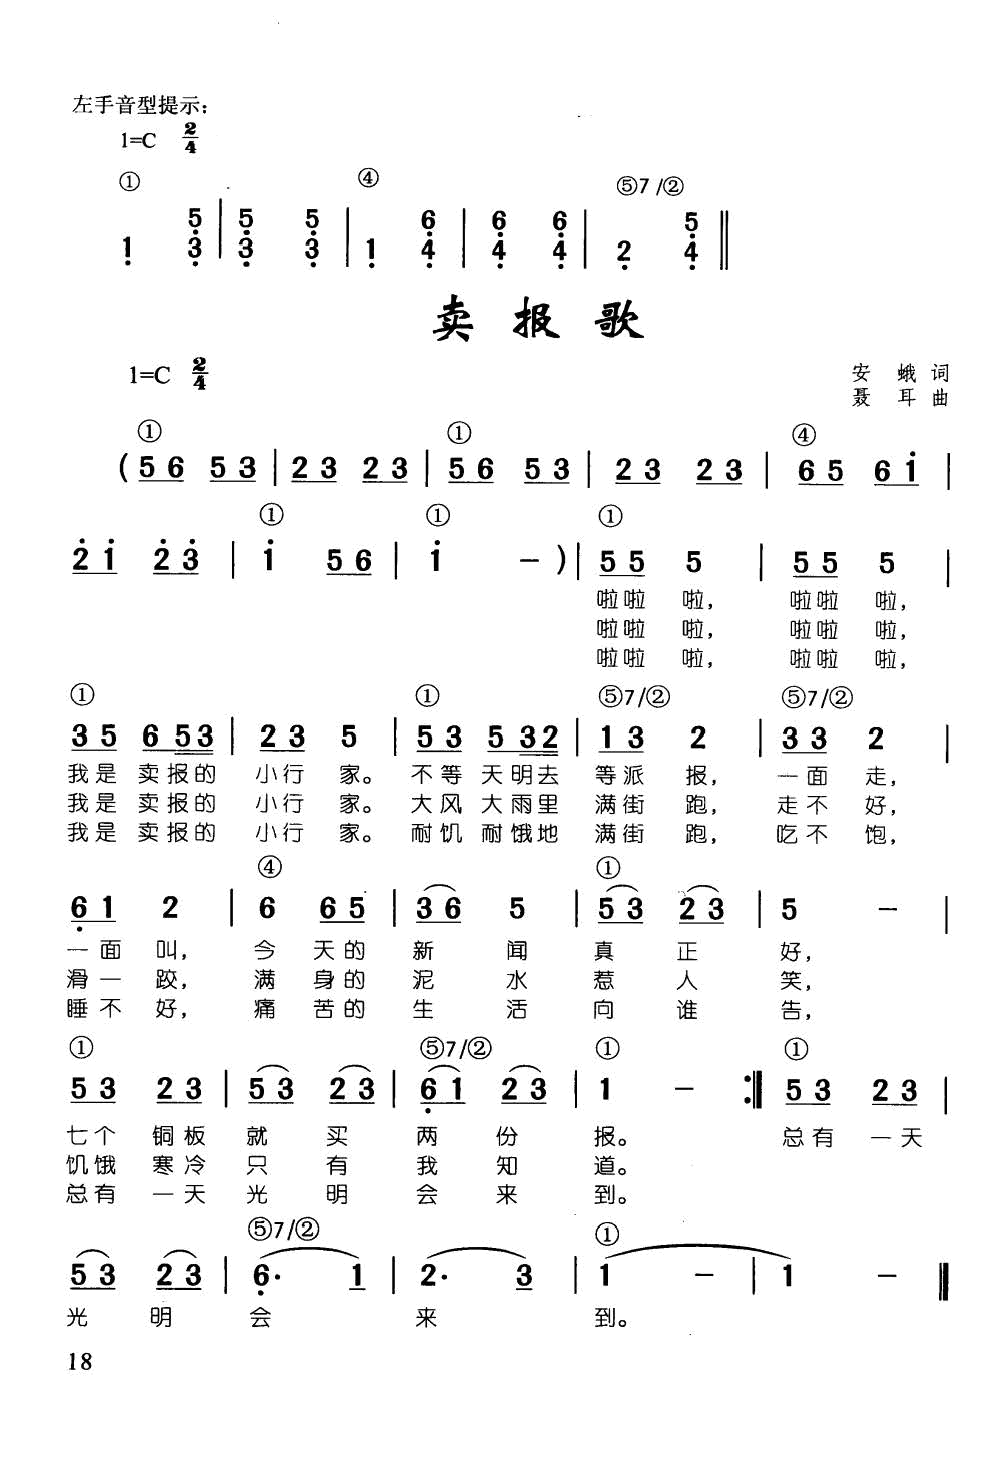 左手音型提示：
1=C 2/4
① ④ ⑤7/②
5 5 5 6 6 6 5
1 3 | 3 3 | 1 4 | 4 4 | 2 4 ‖
卖报歌
1=C 2/4
安 娥 词
聂 耳 曲
① ① ④
( 56 53 | 23 23 | 56 53 | 23 23 | 65 6i |
① ① ①
2i 23 | i 56 | i － ) | 55 5 | 55 5 |
啦啦 啦， 啦啦 啦，
啦啦 啦， 啦啦 啦，
啦啦 啦， 啦啦 啦，
① ① ⑤7/② ⑤7/②
35 653 | 23 5 | 53 532 | 13 2 | 33 2 |
我是 卖报的 小行 家。 不等 天明去 等派 报， 一面 走，
我是 卖报的 小行 家。 大风 大雨里 满街 跑， 走不 好，
我是 卖报的 小行 家。 耐饥 耐饿地 满街 跑， 吃不 饱，
④ ①
61 2 | 6 65 | 36 5 | 53 23 | 5 － |
一面 叫， 今 天的 新 闻 真 正 好，
滑一 跤， 满 身的 泥 水 惹 人 笑，
睡不 好， 痛 苦的 生 活 向 谁 告，
① ⑤7/② ① ①
53 23 | 53 23 | 61 23 | 1 － :‖ 53 23 |
七个 铜板 就 买 两 份 报。 总有 一天
饥饿 寒冷 只 有 我 知 道。
总有 一天 光 明 会 来 到。
⑤7/② ①
53 23 | 6· 1 | 2· 3 | 1 － | 1 － ‖
光 明 会 来 到。
18